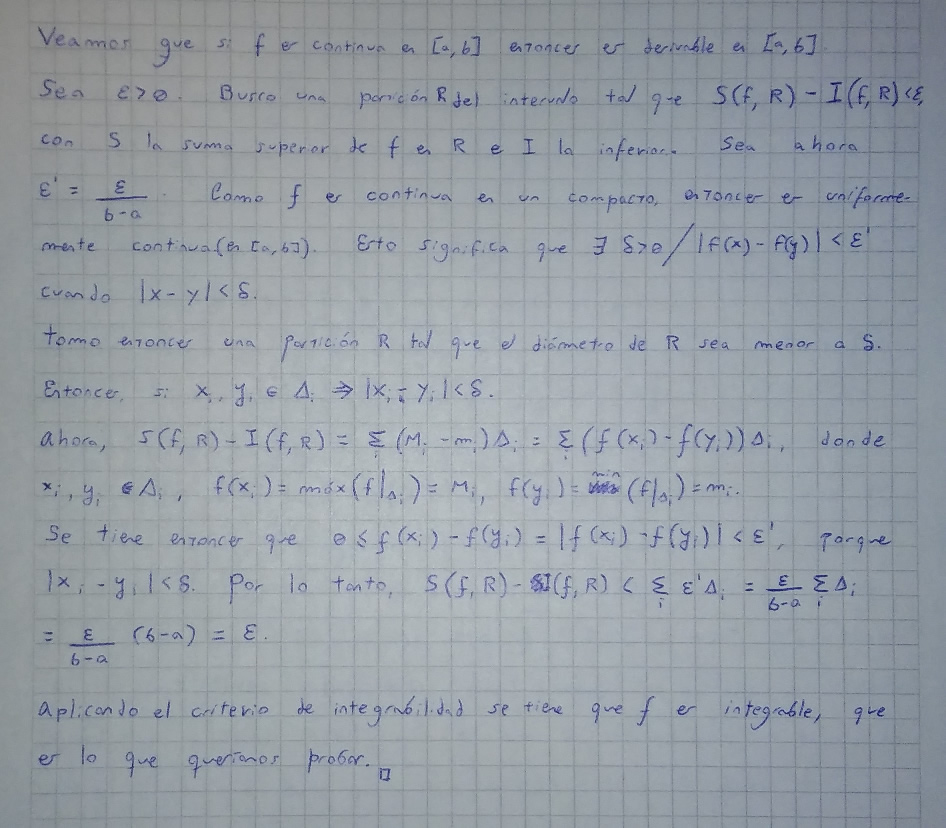 Veamos que si f es continua en [a,b] entonces es derivable en [a,b].
Sea ε>0. Busco una partición R del intervalo tal que S(f,R) - I(f,R) < ε,
con S la suma superior de f en R e I la inferior. Sea ahora
ε' = ε/(b-a). Como f es continua en un compacto, entonces es uniforme-
mente continua (en [a,b]). Esto significa que ∃ δ>0 / |f(x) - f(y)| < ε'
cuando |x-y| < δ.
Tomo entonces una partición R tal que el diámetro de R sea menor a δ.
Entonces, si x_i, y_i ∈ Δ_i ⇒ |x_i - y_i| < δ.
Ahora, S(f,R) - I(f,R) = Σ_i (M_i - m_i) Δ_i = Σ_i (f(x_i) - f(y_i)) Δ_i, donde
x_i, y_i ∈ Δ_i, f(x_i) = máx(f|_Δi) = M_i, f(y_i) = min (f|_Δi) = m_i.
Se tiene entonces que 0 ≤ f(x_i) - f(y_i) = |f(x_i) - f(y_i)| < ε', porque
|x_i - y_i| < δ. Por lo tanto, S(f,R) - I(f,R) < Σ_i ε' Δ_i = ε/(b-a) Σ_i Δ_i
= ε/(b-a) (b-a) = ε.
Aplicando el criterio de integrabilidad se tiene que f es integrable, que
es lo que queríamos probar. □